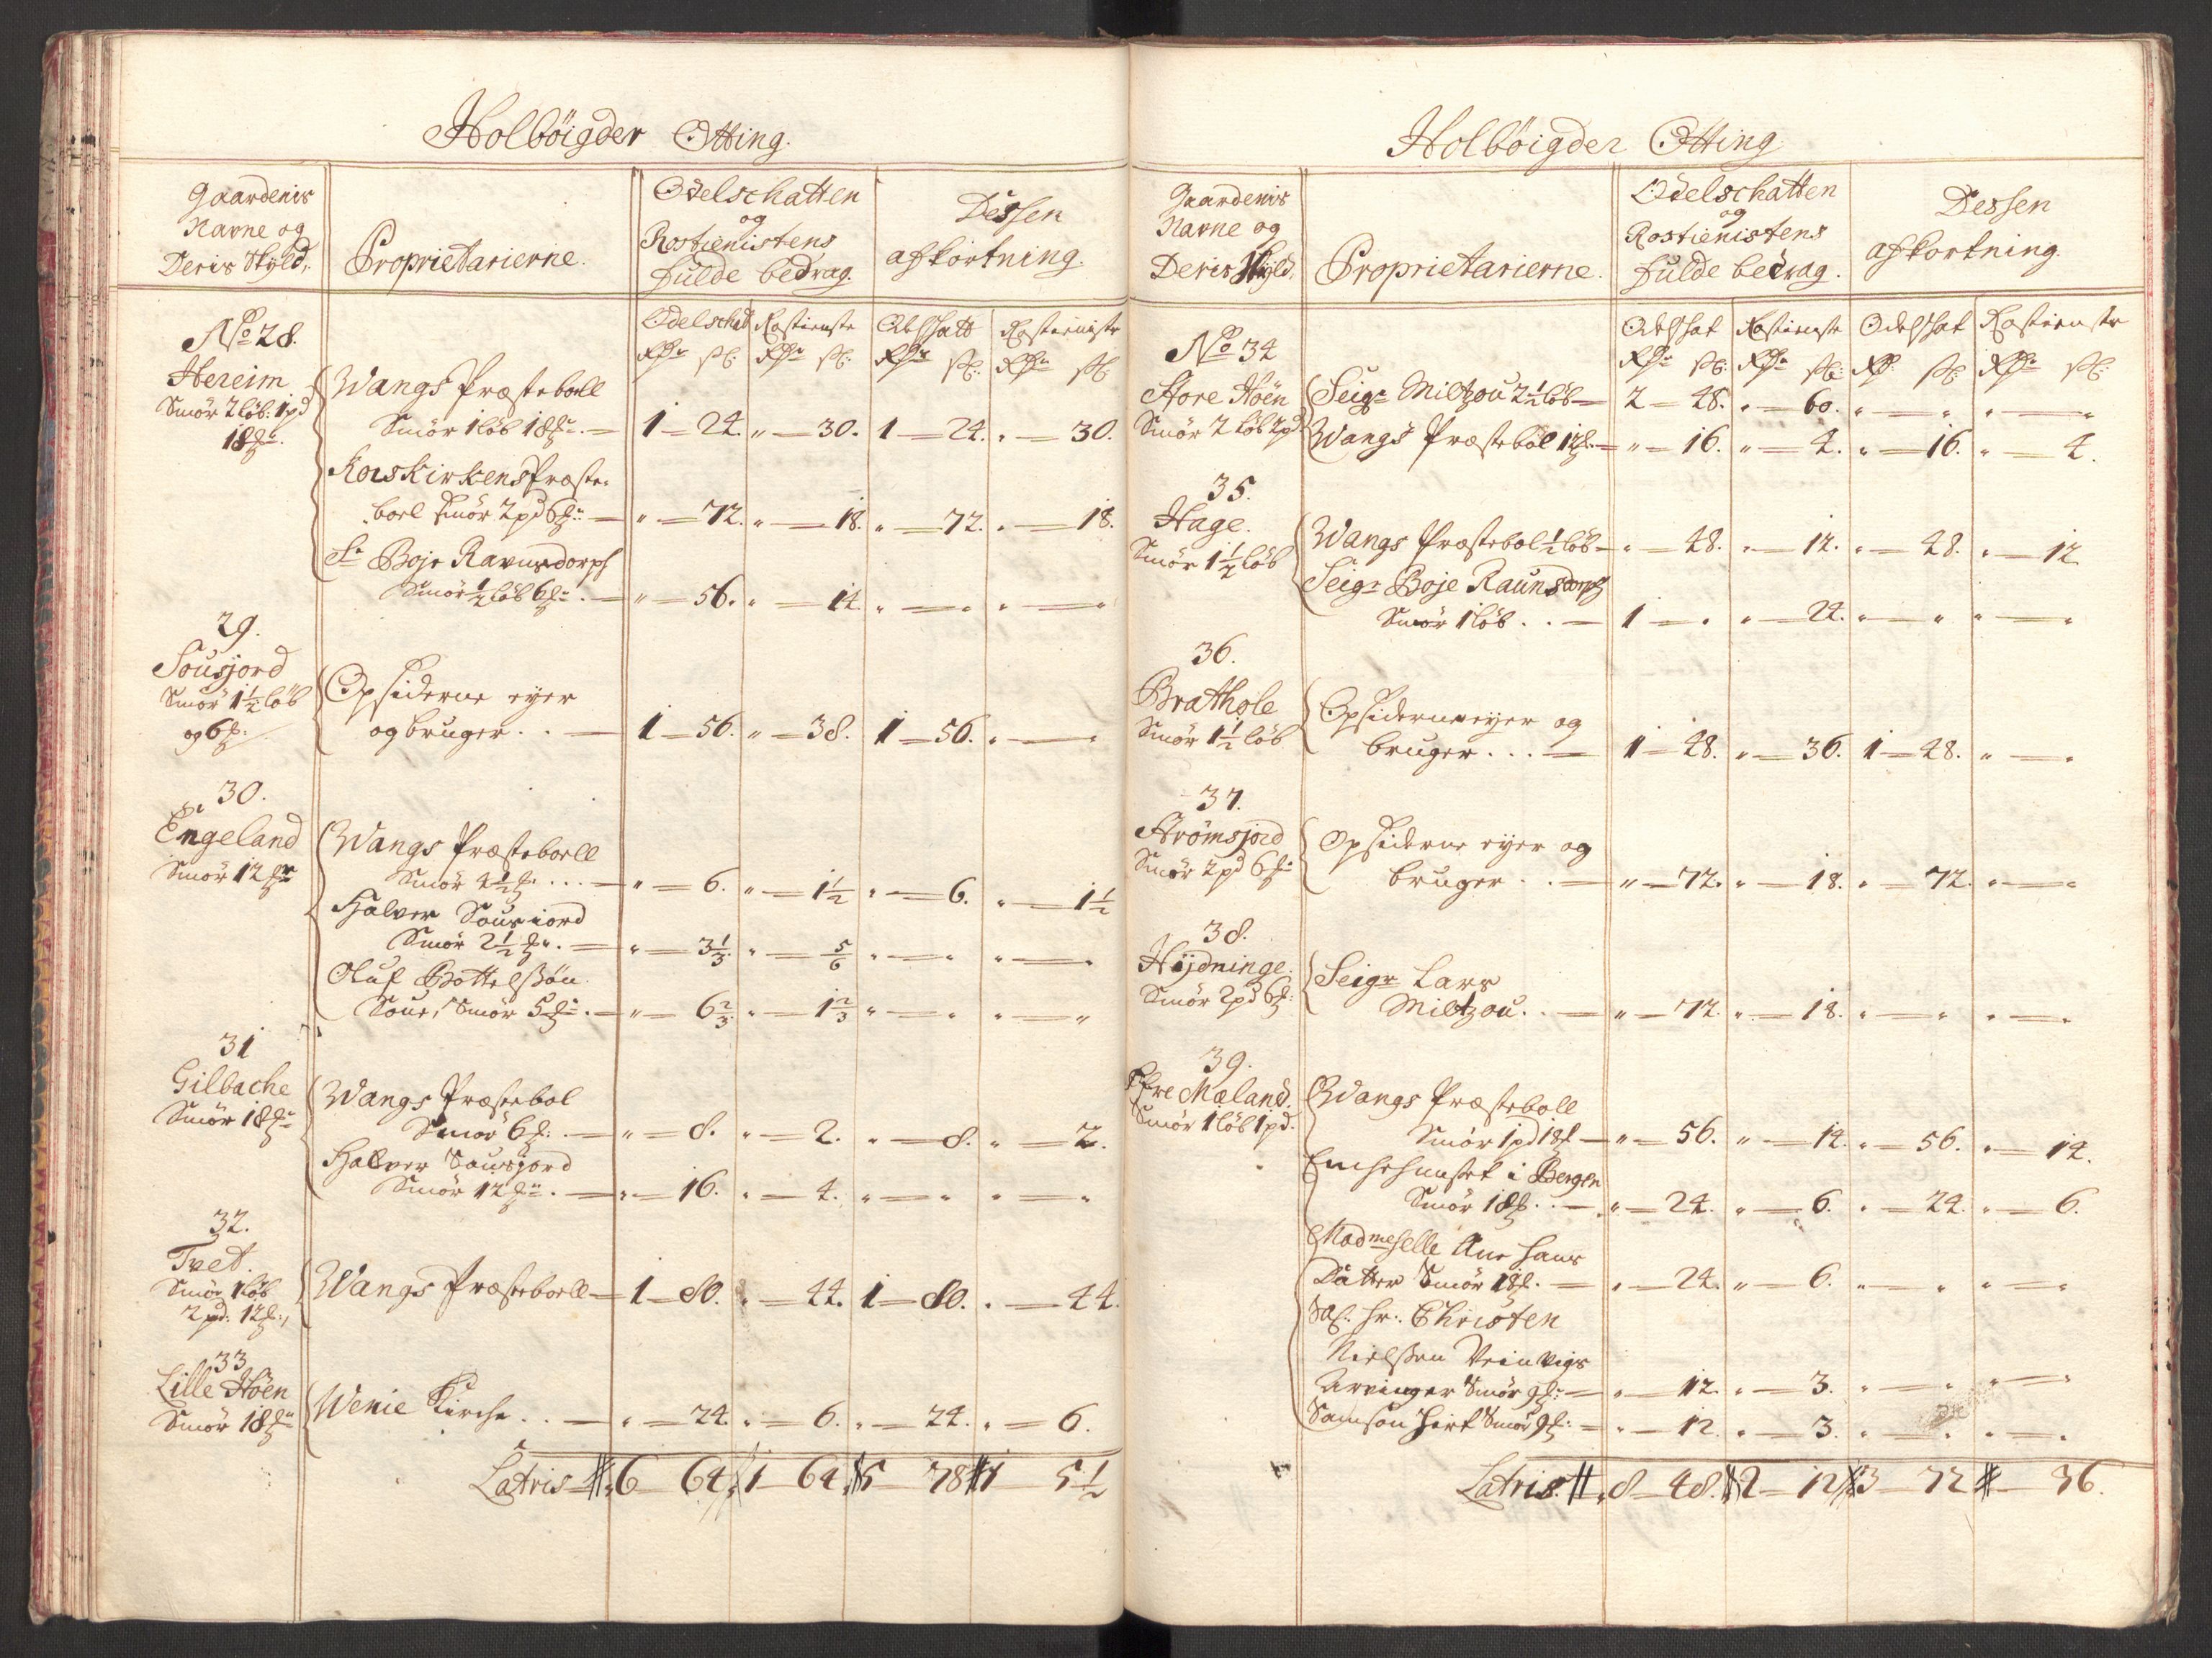 Holböigder Otting.
Gaardenis
Navne og
Deris Skyld,
Proprietarierne.
Odelschatten
og
Rostienistens
fulde bedrag.
Dessen
afkortning.
Odelschat Rostienste Odelschatt Rostieniste
Rdr sk: Rdr sk: Rdr sk: Rdr sk:
No 28.
Hereim
Smör 2 löb: 1 pd
18 mr.
Wangs Præsteboell
Smör 1 löb 18 mr. — 1 — 24. " — 30. 1 — 24. " — 30.
Korskirkens Præste-
boel Smör 2 pd 6 mr: — " — 72. " — 18. " — 72. " — 18.
Sr Boje Ravnsdorph
Smör 1/2 löb 6 mr. — " — 56. " — 14. " — " " — "
29.
Sousjord
Smör 1 1/2 löb
og 6 mr.
Opsiderne eyer
og bruger . . — 1 — 56. " — 38. 1 — 56. " — "
30.
Engeland
Smör 12 mr
Wangs Præsteboell
Smör 4 1/2 mr. . . . — " — 6. " — 1 1/2 " — 6. " — 1 1/2
Halver Sousiord
Smör 2 1/2 mr. — " — 3 1/3. " — 5/6 " — " " — "
Oluf Bottelßön
Soue, Smör 5 mr. — " — 6 2/3. " — 1 2/3 " — " " — "
31
Gilbache
Smör 18 mr
Wangs Præstebol
Smör 6 mr. . — " — 8. " — 2. " — 8. " — 2.
Halver Sousjord
Smör 12 mr. — " — 16. " — 4. " — " " — "
32.
Tvet.
Smör 1 löb
2 pd: 12 mr.,
Wangs Præsteboell — 1 — 80. " — 44. 1 — 80. " — 44.
33
Lille Höen
Smör 18 mr
Wenie Kirche . . — " — 24. " — 6. " — 24. " — 6.
Latris — 6 64. 1 — 64. 5 — 78 1 5 1/2
Holböigder Otting
Gaardenis
Navne og
Deris Skyld,
Proprietarierne.
Odelschatten
og
Rostienistens
fulde bedrag.
Dessen
afkortning.
Odelschat Rostienste Odelschat Rostienste
Rdr sk: Rdr sk: Rd sk: Rdr sk:
No 34
Store Höen
Smör 2 löb 2 pd
Seigr Miltzou 2 1/2 löb — 2 — 48. " — 60. " — " " — "
Wangs Præstebol 12 mr. — " — 16. " — 4. " — 16. " — 4.
35.
Hage.
Smör 1 1/2 löb
Wangs Præstebol 1/2 löb — " — 48. " — 12. " — 48. " — 12
Seigr Boje Raunsdorph
Smör 1 löb . . — 1 — " " — 24. " — " " — "
36.
Brathole
Smör 1 1/2 löb
Opsiderne eyer og
bruger . . . — 1 — 48. " — 36. 1 — 48. " — "
37.
Strömsjord
Smör 2 pd 6 mr
Opsiderne eyer og
bruger . . — " — 72. " — 18. " — 72. " — "
38.
Hydninge.
Smör 2 pd 6 mr:
Seigr Lars
Miltzou. . — " — 72. " — 18. " — " " — "
39.
Mæland.
Smör 1 löb 1 pd.
Wangs Præsteboll
Smör 1 pd 18 mr — " — 56. " — 14. " — 56. " — 14.
Enchehuuset i Bergen
Smör 18 mr. . — " — 24. " — 6. " — 24. " — 6.
Madmeselle Ane Hans
Datter Smör 18 mr. — " — 24. " — 6. " — " " — "
Sal: Hr: Christen
Nielßen Weinvigs
Arvinger Smör 9 mr: — " — 12. " — 3. " — " " — "
Samson Hirt Smör 9 mr: — " — 12. " — 3. " — " " — "
Latris. 8 — 48. 2 — 12 3 — 72 — 36.